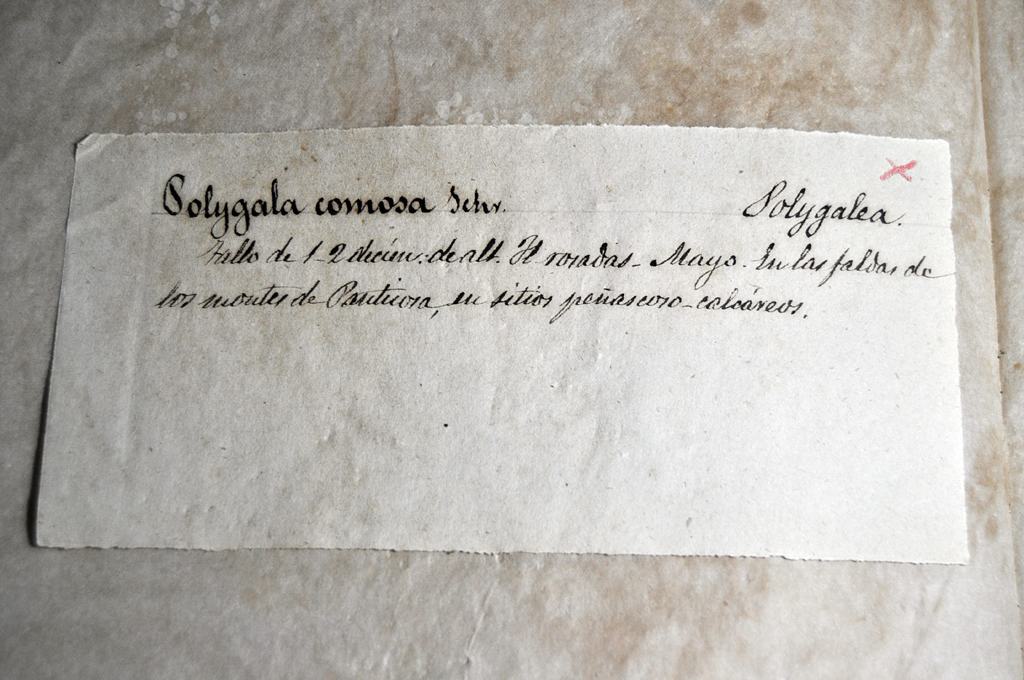 Polygala comosa Schr. Polygalea.
Tallo de 1-2 decím. de alt. Fl rosadas - Mayo. En las faldas de
los montes de Panticosa, en sitios peñascoso-calcáreos.